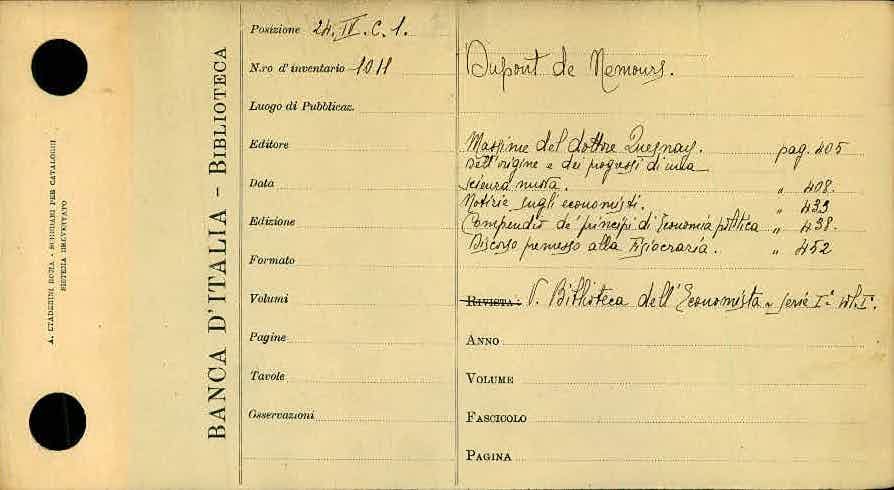 A. STADERINI, ROMA - SCHEDARI PER CATALOGHI
SISTEMA BREVETTATO
BANCA D'ITALIA - BIBLIOTECA
Posizione 24. IV. C. 1.
N.ro d'inventario 1011
Luogo di Pubblicaz.
Editore
Data
Edizione
Formato
Volumi
Pagine
Tavole
Osservazioni
Dupont de Nemours.
Massime del dottore Quesnay. pag. 405
Dell'origine e dei progressi di una
scienza nuova. " 408.
Notizie sugli economisti. " 433
Compendio de' principi di Economia politica " 438.
Discorso premesso alla Fisiocrazia. " 452
RIVISTA: V. Biblioteca dell'Economista - serie Iª vol. I°.
ANNO
VOLUME
FASCICOLO
PAGINA